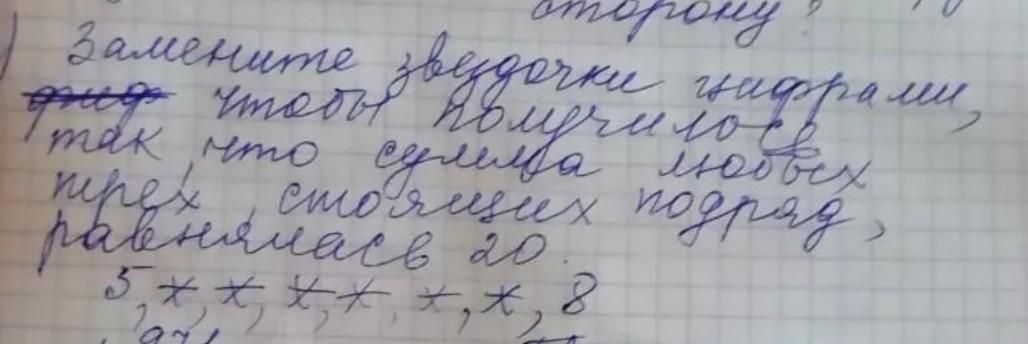 сторону?
Замените звездочки цифрами,
чтобы получилось
так, что сумма любых
трех, стоящих подряд,
равнялась 20.
5, *, *, *, *, *, *, 8